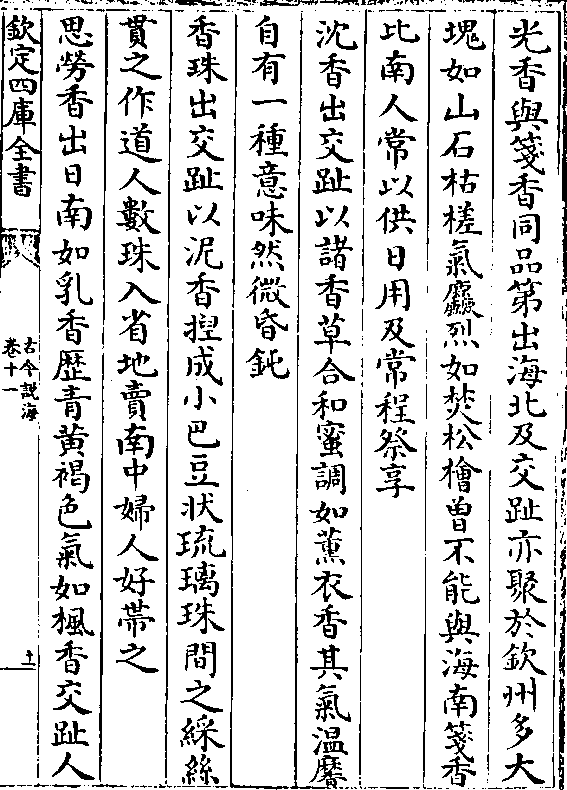 光香與箋香同品第出海北及交趾亦聚於欽州多大
塊如山石枯槎氣麤烈如焚松檜曽不能與海南箋香
比南人常以供日用及常程祭享
沈香出交趾以諸香草合和蜜調如薰衣香其氣温黁
自有一種意味然微昏鈍
香珠出交趾以泥香揑成小巴豆状琉璃珠間之綵絲
貫之作道人數珠入省地賣南中婦人好帶之
思勞香出日南如乳香歴青黄褐色氣如楓香交趾人
欽定四庫全書
古今説海
卷十一
土